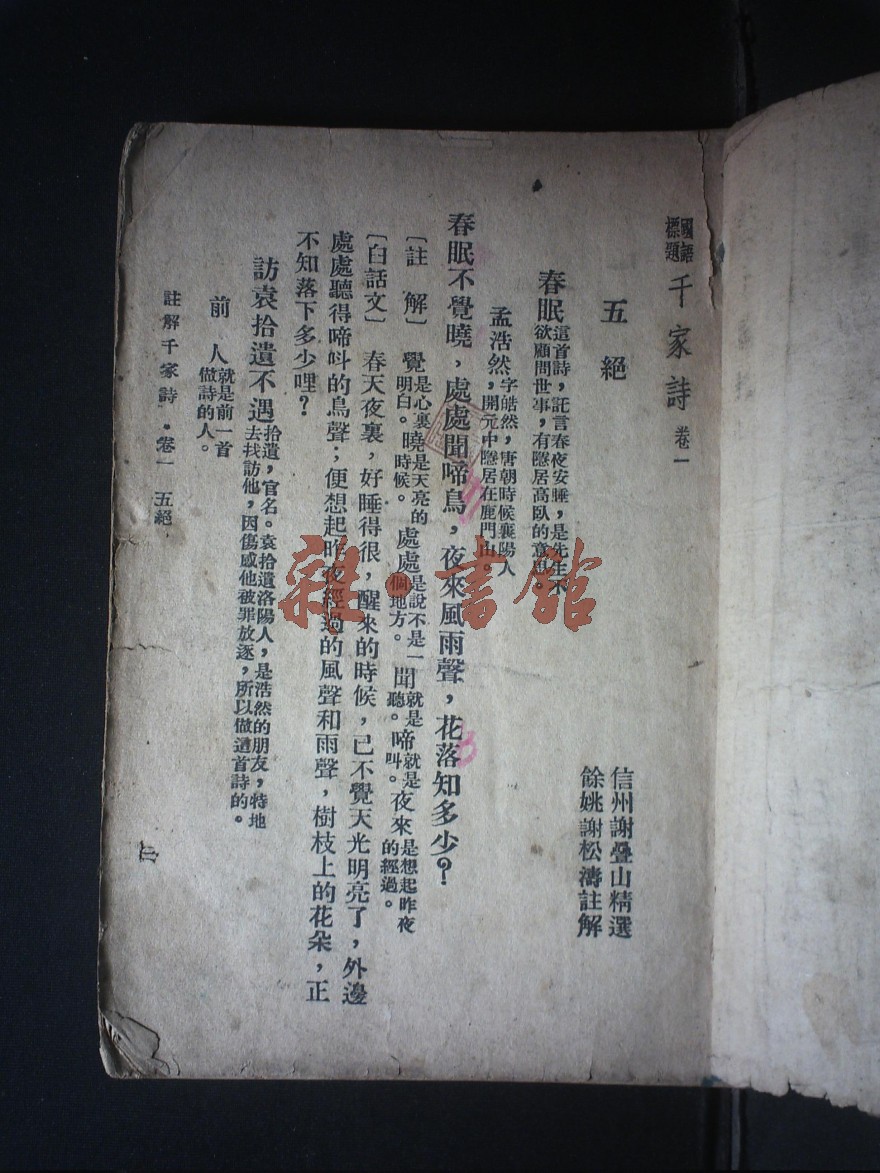 國語
標題
千家詩 卷一
信州謝疊山精選
餘姚謝松濤註解
五絕
春眠 這首詩，託言春夜安睡，是先生不
欲顧問世事，有隱居高臥的意思。
孟浩然，字皓然，唐朝時候襄陽人
，開元中隱居在鹿門山。
春眠不覺曉，處處聞啼鳥，夜來風雨聲，花落知多少？
〔註解〕 覺 是心裏明白。 曉 是天亮的時候。 處處 是說不是一個地方。 聞 就是聽。 啼 就是叫。 夜來 是想起昨夜的經過。
〔白話文〕 春天夜裏，好睡得很，醒來的時候，已不覺天光明亮了，外邊
處處聽得啼呌的鳥聲；便想起昨夜經過的風聲和雨聲，樹枝上的花朵，正
不知落下多少哩？
訪袁拾遺不遇 拾遺，官名。袁拾遺洛陽人，是浩然的朋友，特地
去找訪他，因傷感他被罪放逐，所以做這首詩的。
前人 就是前一首
做詩的人。
註解千家詩・卷一 五絕
雜・書館